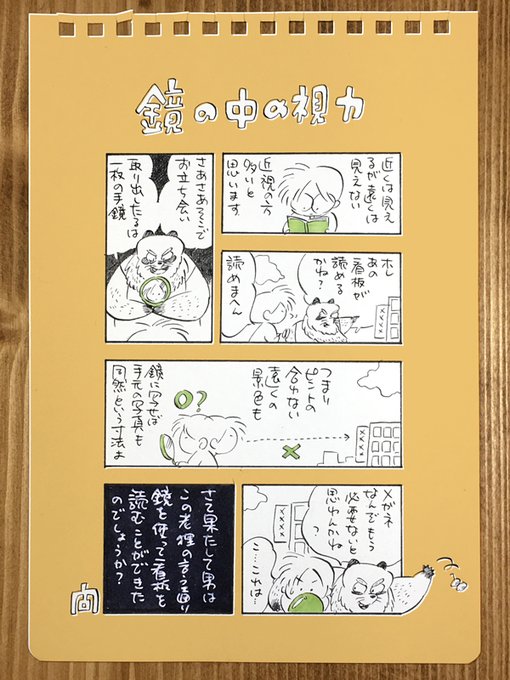 鏡の中の視力
近くは見え
るが遠くは
見えない
近視の方
多いと
思います
さあさあそこで
お立ち会い
取り出したるは
一枚の手鏡
ホレ
あの
看板が
読める
かね?
読めまへん
××××
つまり
ピントの
合わない
遠くの
景色も
鏡に写せば
手元の写真も
同然という寸法よ
○?
×
××××
メガネ
なんてもう
必要ないと
思わんかね
?
こ…これは…
××××
さて果たして男は
この老狸の言う通り
鏡を使って看板を
読むことができた
のでしょうか?
向